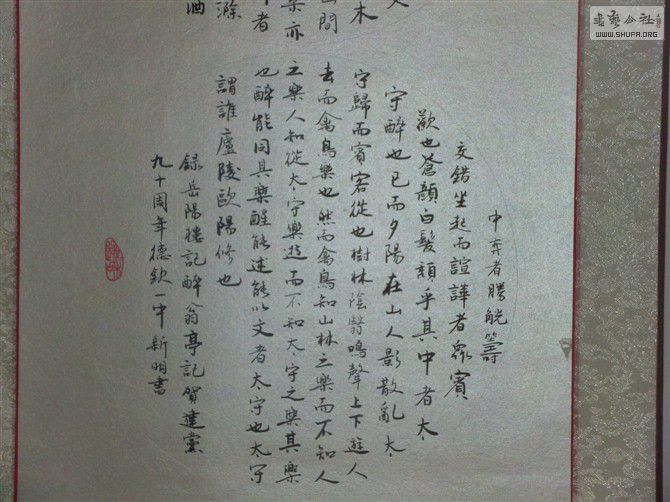 書藝公社
WWW.SHUFA.ORG
木
樂亦
者
滁
酒
中弈者勝觥籌
交錯坐起而諠譁者眾賓
歡也蒼顏白髮頹乎其中者太
守醉也已而夕陽在山人影散亂太
守歸而賓客從也樹林陰翳鳴聲上下遊人
去而禽鳥樂也然而禽鳥知山林之樂而不知人
之樂人知從太守樂遊而不知太守之樂其樂
也醉能同其樂醒能述能以文者太守也太守
謂誰廬陵歐陽修也
錄岳陽樓記醉翁亭記賀建黨
九十周年德欽一中新明書